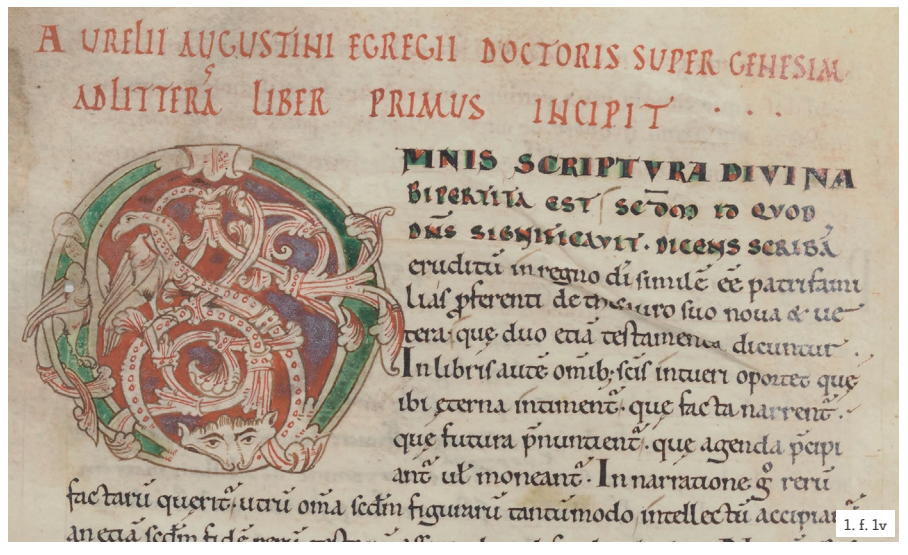 AURELII AUGUSTINI EGREGII DOCTORIS SUPER GENESIM
AD LITTERĀ LIBER PRIMUS INCIPIT . . .
OMNIS SCRIPTURA DIVINA
BIPERTITA EST SECDM ID QUOD
DN̄S SIGNIFICAVIT. DICENS SCRIBĀ
eruditū in regno dī similē eē patrifami
lias ꝓferenti de thesauro suo noua & ue
tera. quę duo etiā testamenta dicuntur.
In libris autē omīb; scīs intueri oportet quę
ibi ęterna intiment̄. quę facta narrent̄.
quę futura p̄nuntient̄. quę agenda p̄cipi
ant̄ ul̄ moneant̄. In narratione g̊ rerū
factarū querit̄. utrū om̄a scdm̄ figurarū tantūmodo intellectū accipian
an etiā scdm̄ fidē rerū
1. f. 1v